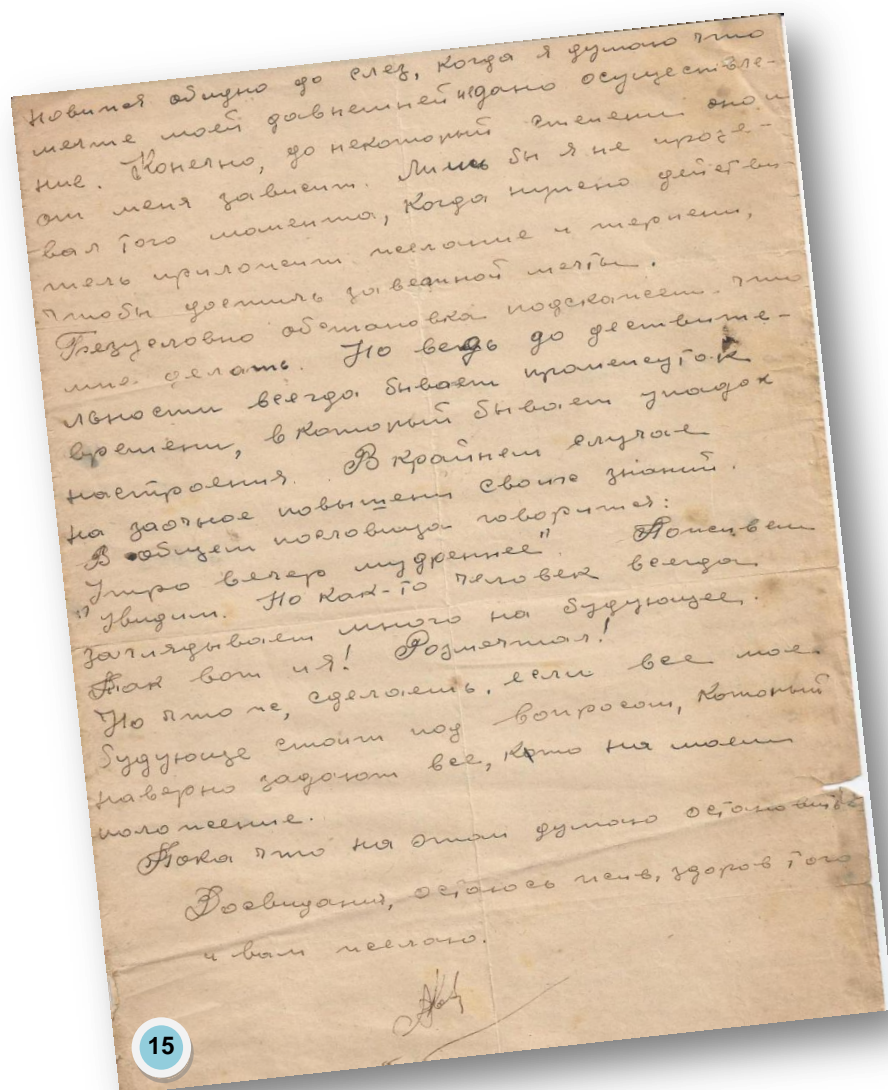 новится обидно до слез, когда я думаю что
мечте моей давнешней недано осуществле-
ние. Конечно, до некоторый степени оно и
от меня зависит. Лишь бы я не прозе-
вал того момента, когда нужно действи-
тель приложит желание и терпени,
чтобы достичь заветной мечты.
Безусловно обстановка подскажет что
мне делать. Но ведь до дествите-
льности всегда бывает промежуток
времени, в который бывает упадок
настроения. В крайнем случае
на заочное повышени своих знаний.
В общем пословица говорится:
Утро вечер мудреннее". Поживем
"увидим. Но как-то человек всегда
заглядывает много на будующее.
Так вот и я! Розмечтал!
Но что же, сделаешь, если все мое
будующе стоит под вопросом, который
наверно задают все, кто на моем
положение.
Пока что на этом думаю остановиться
Досвидания, остаюсь жив, здоров того
и вам желаю.
15